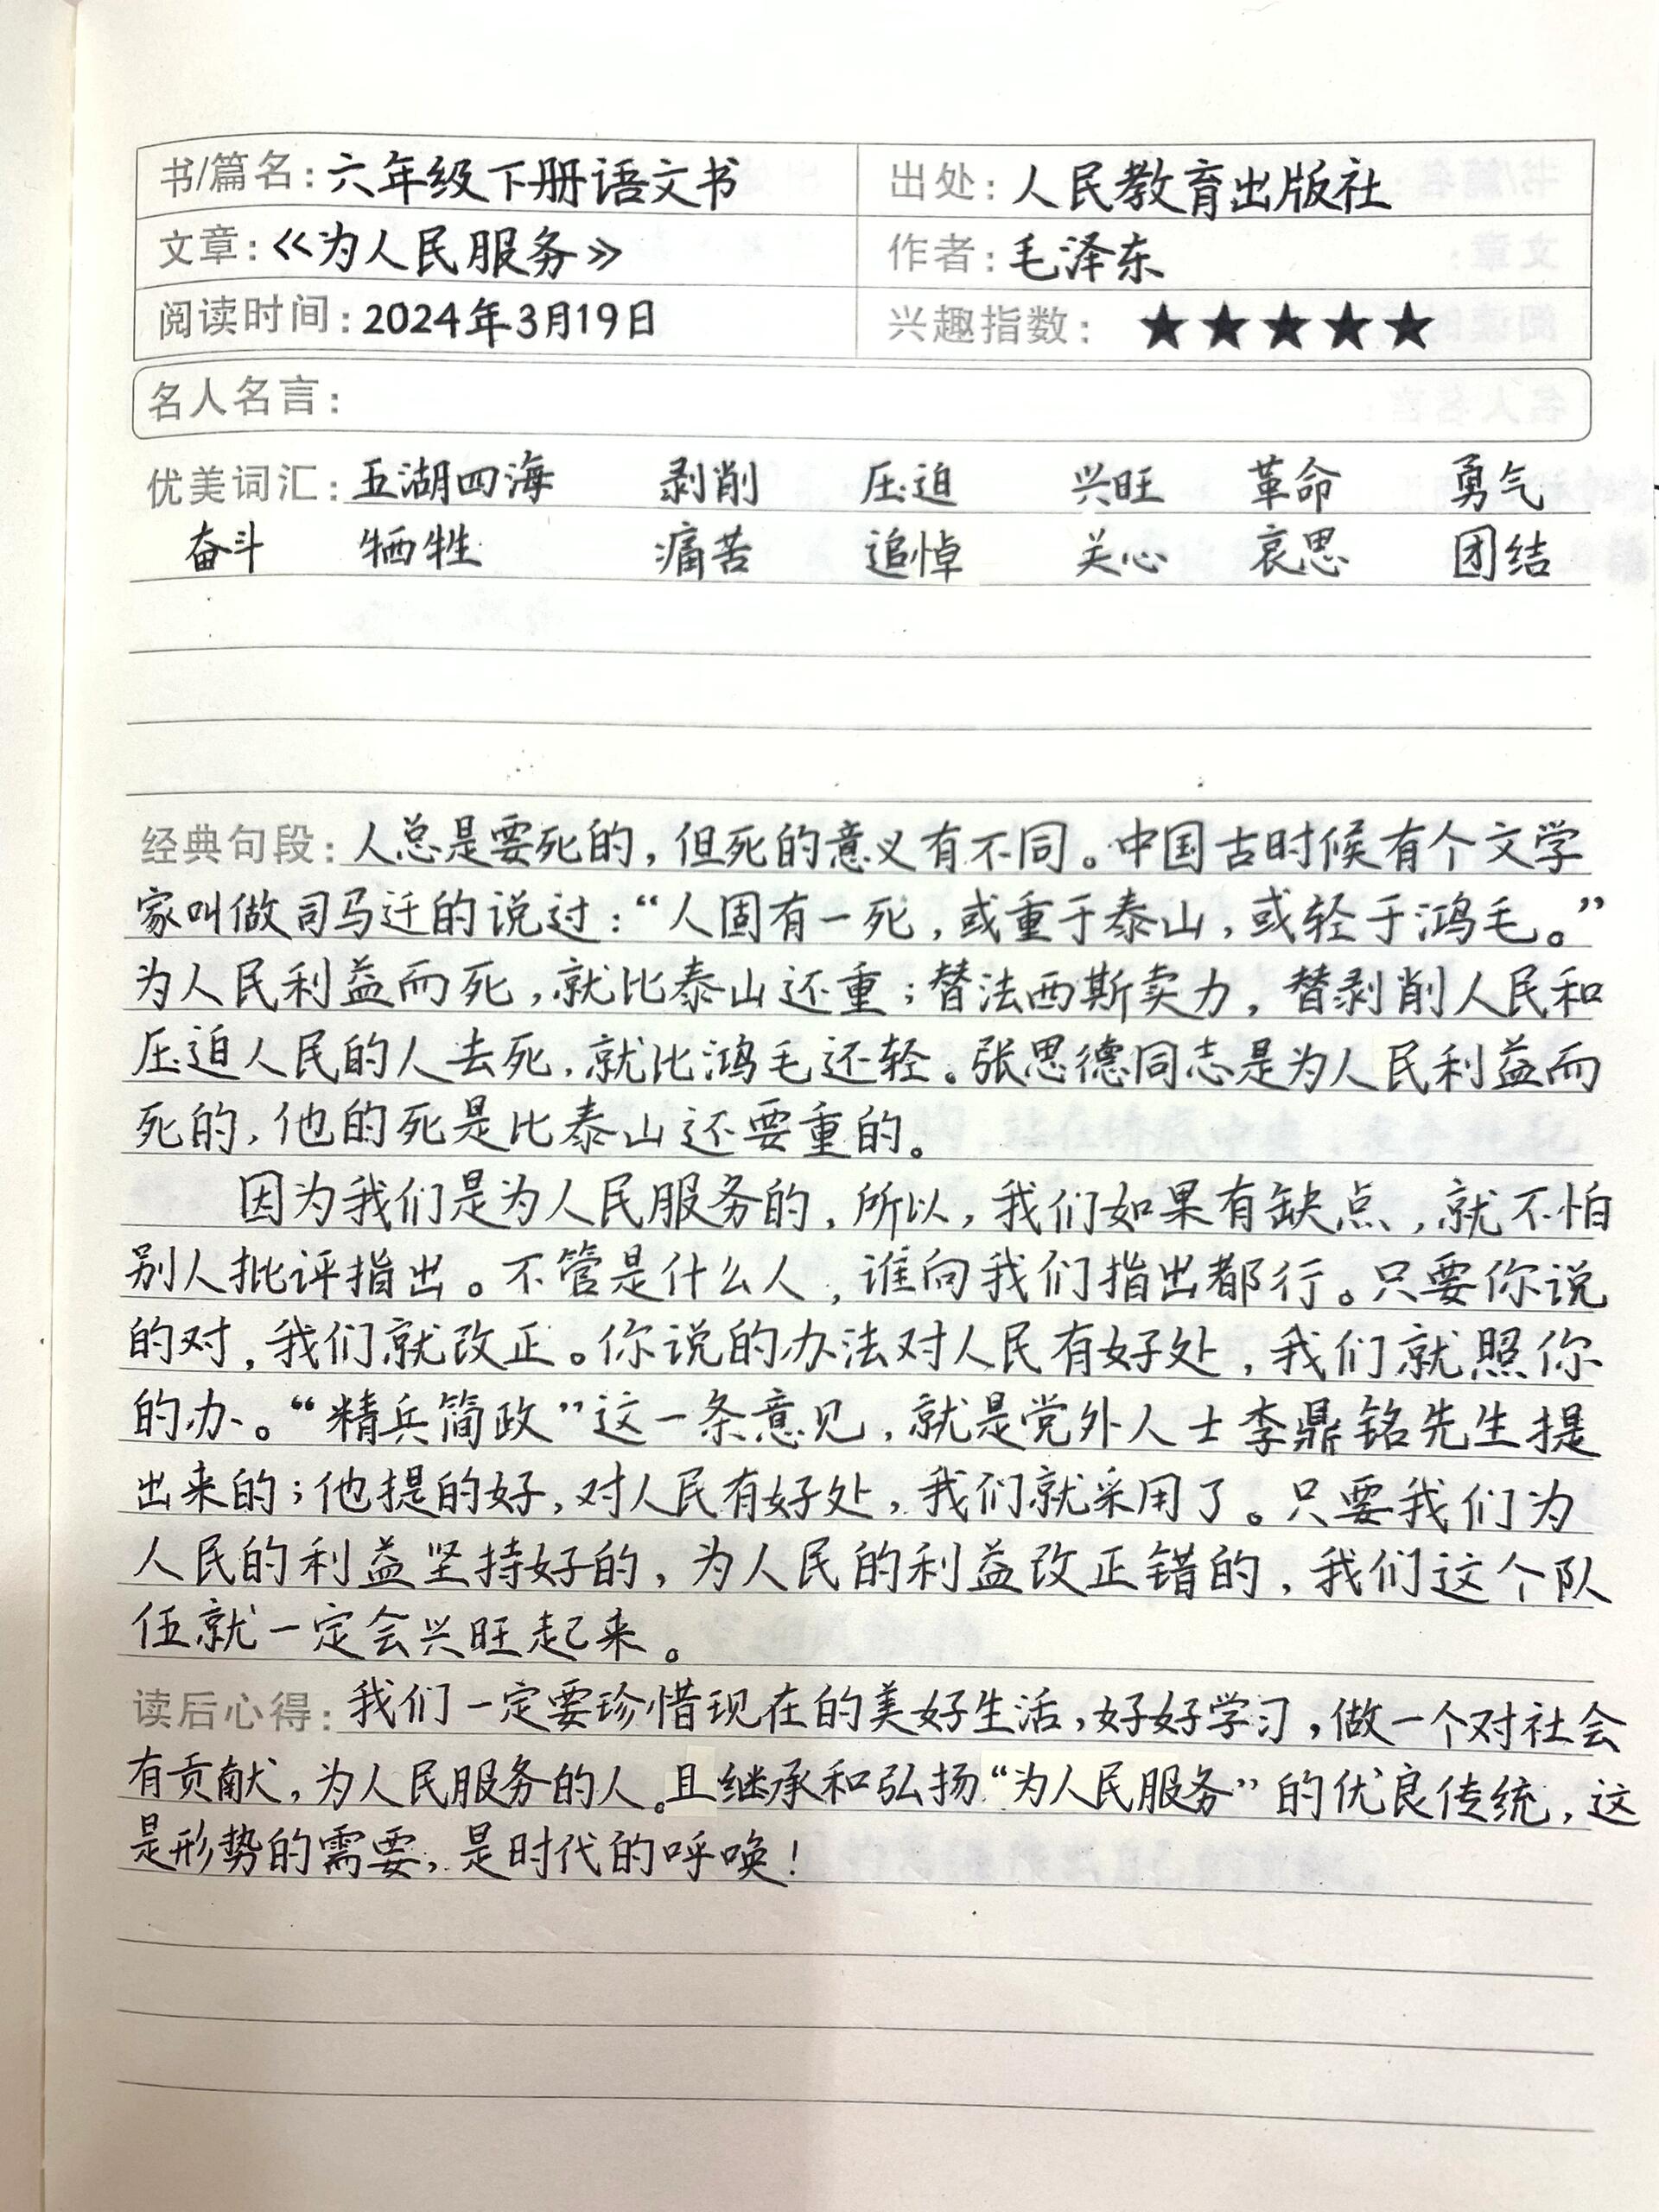 书/篇名：六年级下册语文书 出处：人民教育出版社
文章：《为人民服务》 作者：毛泽东
阅读时间：2024年3月19日 兴趣指数：★★★★★
名人名言：
优美词汇：五湖四海 剥削 压迫 兴旺 革命 勇气
奋斗 牺牲 痛苦 追悼 关心 哀思 团结
经典句段：人总是要死的，但死的意义有不同。中国古时候有个文学
家叫做司马迁的说过：“人固有一死，或重于泰山，或轻于鸿毛。”
为人民利益而死，就比泰山还重；替法西斯卖力，替剥削人民和
压迫人民的人去死，就比鸿毛还轻。张思德同志是为人民利益而
死的，他的死是比泰山还要重的。
因为我们是为人民服务的，所以，我们如果有缺点，就不怕
别人批评指出。不管是什么人，谁向我们指出都行。只要你说
的对，我们就改正。你说的办法对人民有好处，我们就照你
的办。“精兵简政”这一条意见，就是党外人士李鼎铭先生提
出来的；他提的好，对人民有好处，我们就采用了。只要我们为
人民的利益坚持好的，为人民的利益改正错的，我们这个队
伍就一定会兴旺起来。
读后心得：我们一定要珍惜现在的美好生活，好好学习，做一个对社会
有贡献，为人民服务的人。且继承和弘扬“为人民服务”的优良传统，这
是形势的需要，是时代的呼唤！